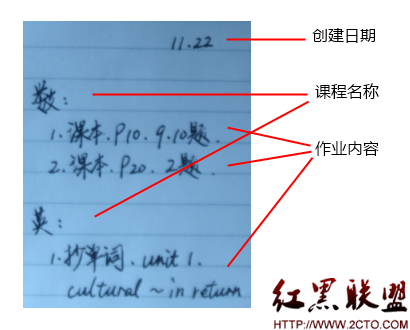 11.22
创建日期
数:
课程名称
1.课本.P10.9.10题.
作业内容
2.课本.P20.2题.
英:
1.抄单词.unit 1.
cultural~in return
红黑联盟
HTTP://WWW.2CTO.COM